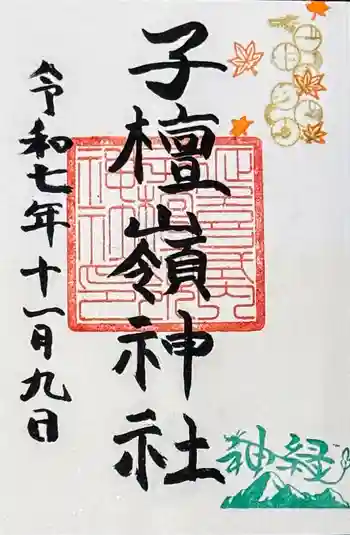 子檀嶺神社
令和七年十一月九日
神経